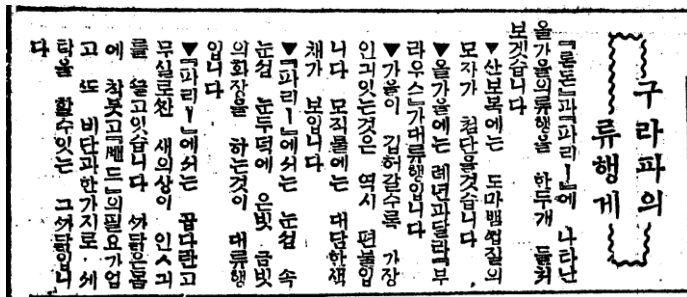 구라파의
류행게
『론돈』과『파리ー』에 나타난
올가을의류행을 한두개 들처
보겟습니다
▼산보복에는 도마뱀껍질의
모자가 첨단을것습니다
▼올가을에는 례년과달라『부
라우스』가대류행입니다
▼가을이 깁허갈수록 가장
인긔잇는것은 역시 편물입
니다 모직물에는 대담한색
채가 보입니다
▼『파리ー』에서는 눈썹 속
눈썹 눈두덕에 은빗 금빗
의화장을 하는것이 대류행
입니다
▼『파리ー』에서는 꼽다란고
무실로짠 새의상이 인긔
를 끌고잇습니다 싸닭은몸
에 착붓고『밴드』의필요가업
고 또 비단과한가지로 세
탁을 할수잇는 싸닭입니
다